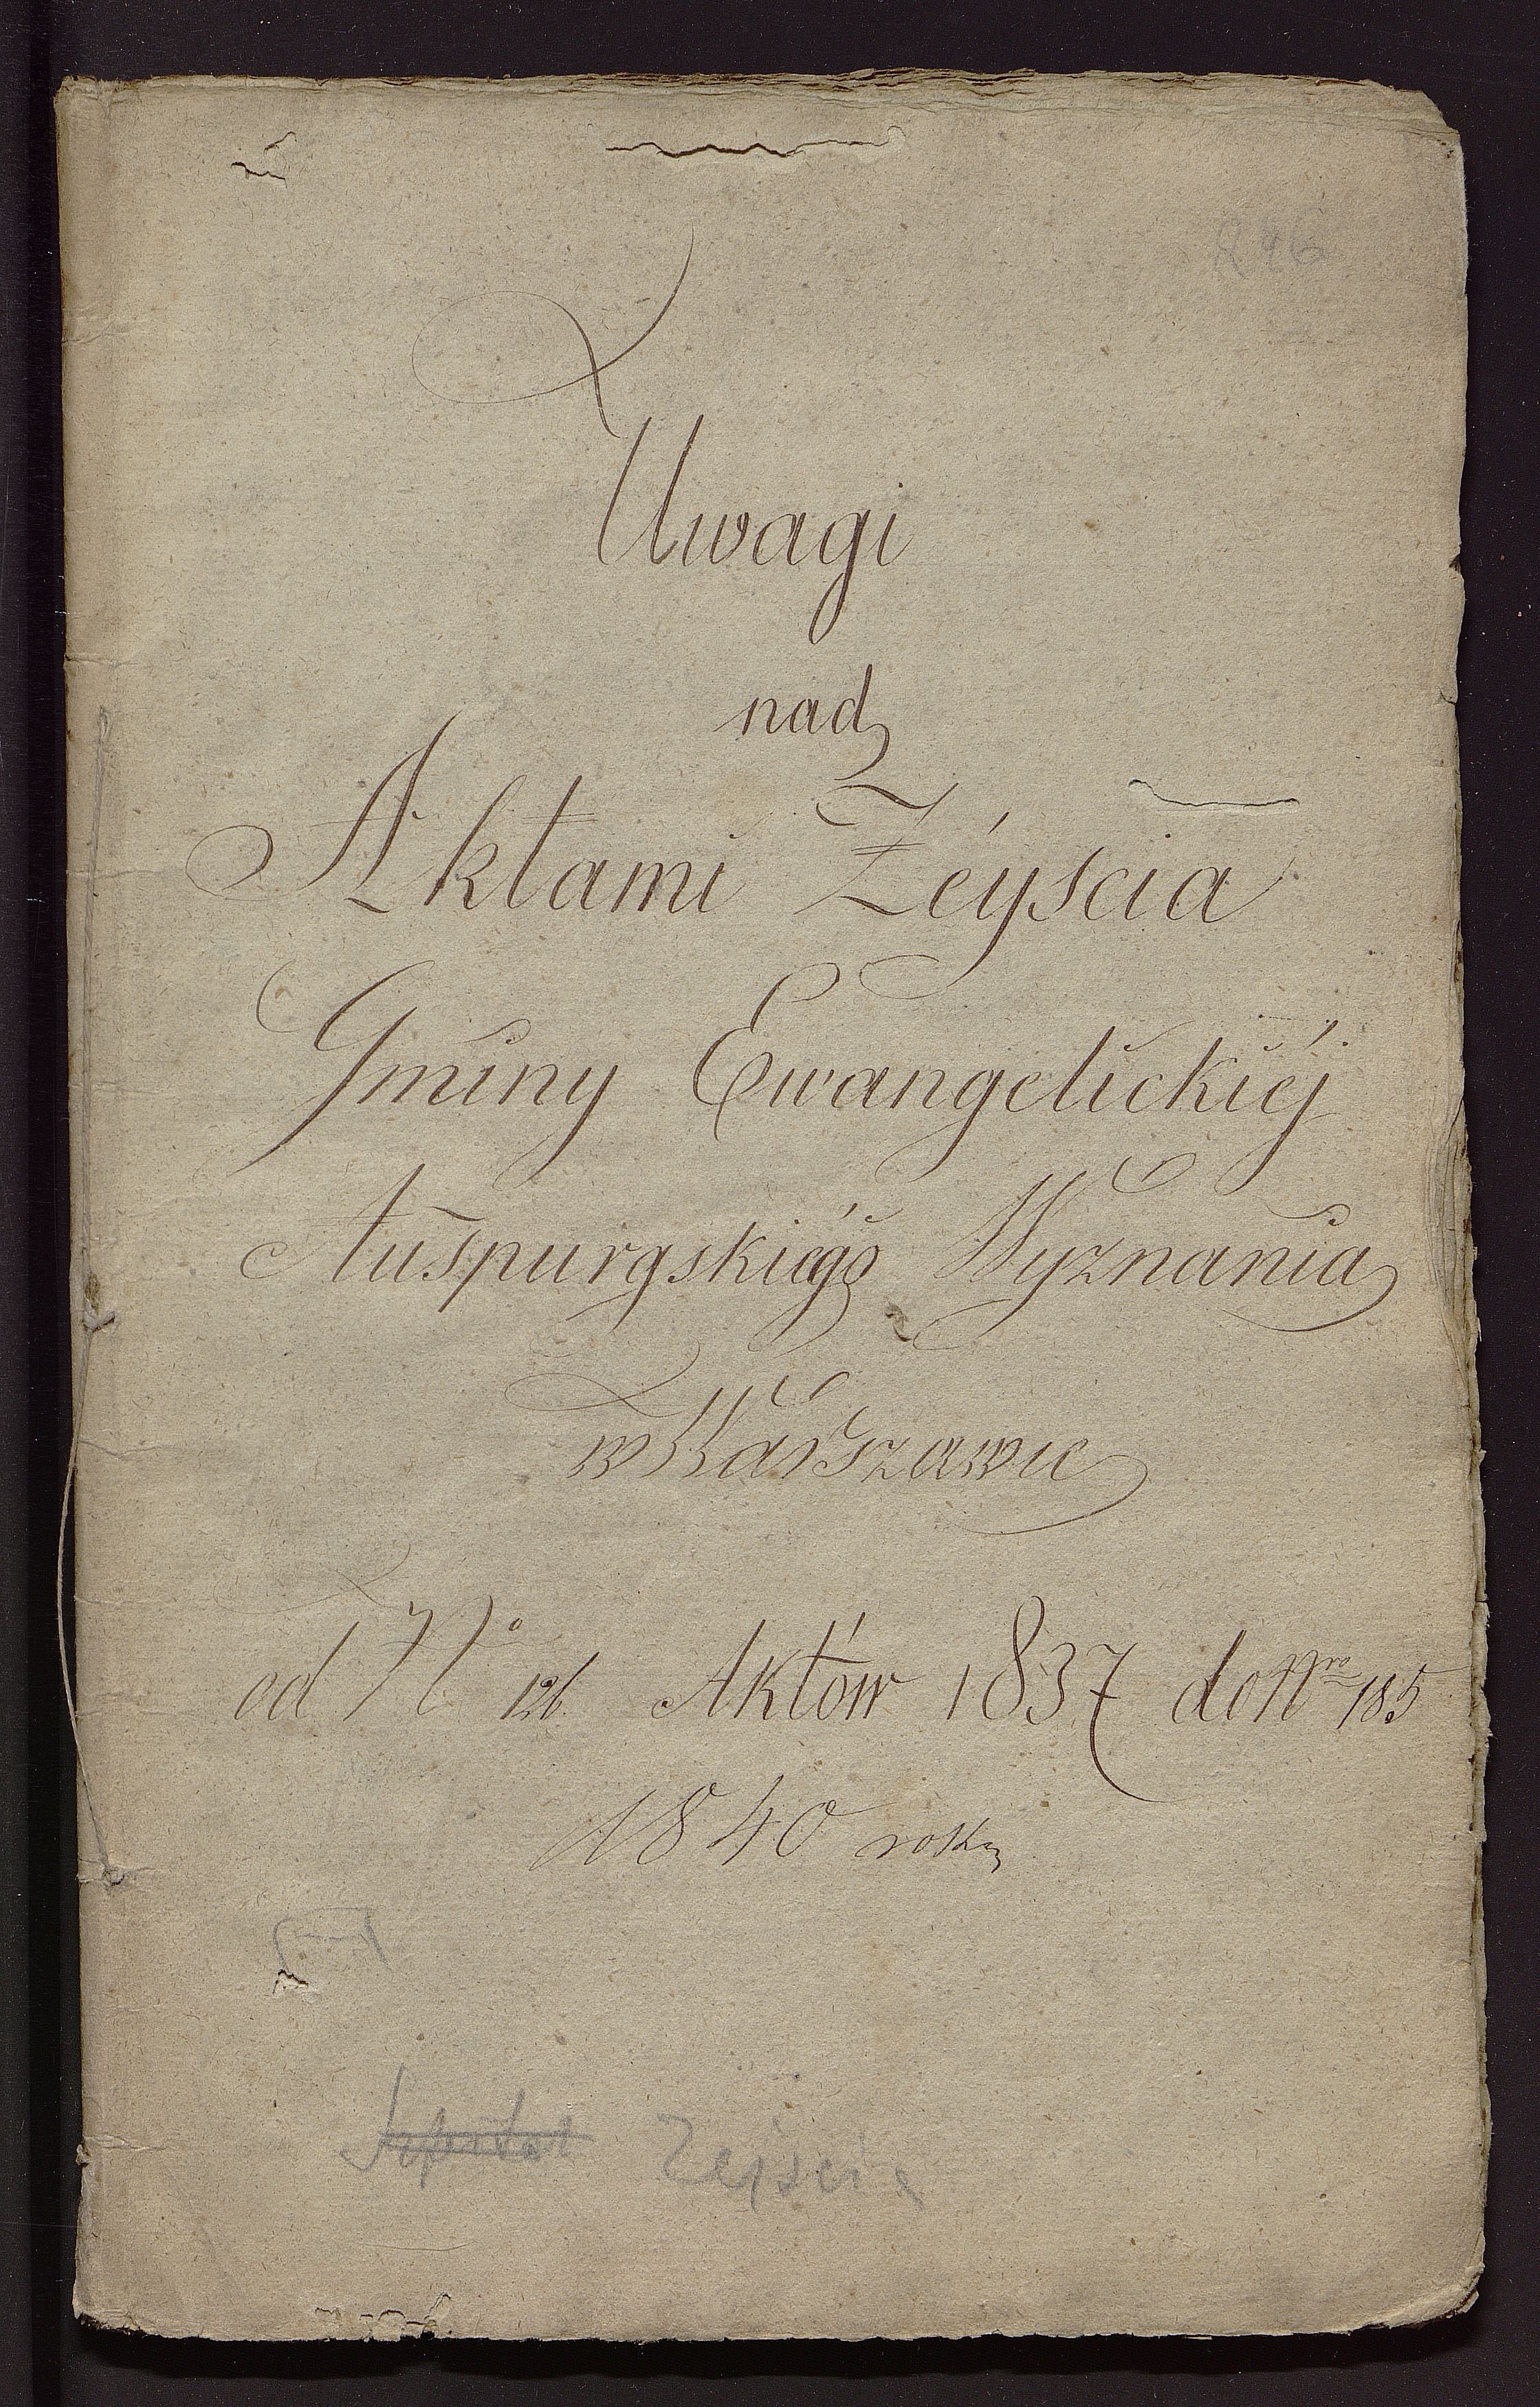 Uwagi
nad
Aktami Zéyscia
Gminy Ewangelickiéj
Auspurgskiego Wyznania
w Warszawie
od No 126 Aktów 1837 do Nro 185
1840 roku
Szpital Zejscia